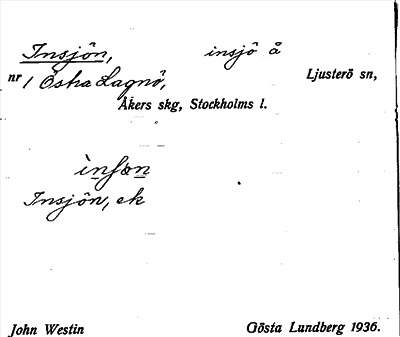 Insjön, insjö å
nr 1 Östra Lagnö, Ljusterö sn,
Åkers skg, Stockholms l.
Insjön, ek
John Westin Gösta Lundberg 1936.